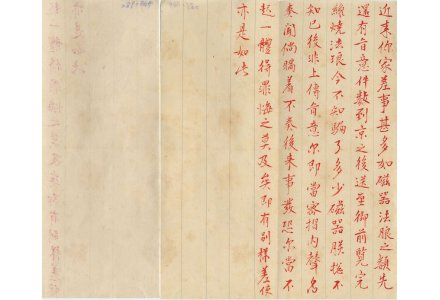 近来你家差事甚多如磁器法瑯之類先
還有旨意件數到京之後送至御前覽完
纔燒法瑯今不知騙了多少磁器朕搃不
知已後非上傳旨意尔即當宻摺内聲名
奏聞倘瞞着不奏後来事發恐尔當不
起一體得罪悔之莫及矣即有别樣差使
亦是如此